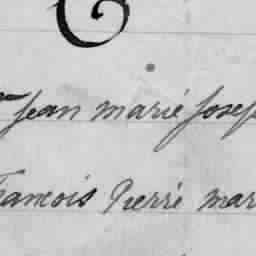 Jean marié Josep
francois Pierré mar